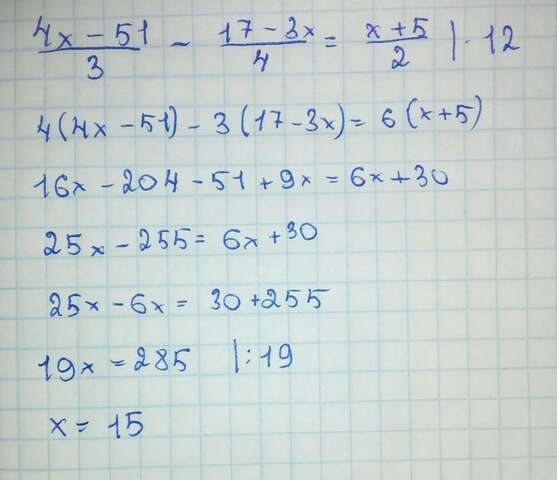 (4x - 51)/3 - (17 - 3x)/4 = (x + 5)/2 | · 12
4(4x - 51) - 3(17 - 3x) = 6(x + 5)
16x - 204 - 51 + 9x = 6x + 30
25x - 255 = 6x + 30
25x - 6x = 30 + 255
19x = 285 | : 19
x = 15